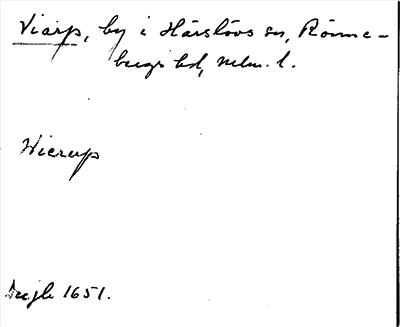 Viarp, by i Härslövs sn, Rönne-
bergs hd, Mlm. l.
Wierup
1651.